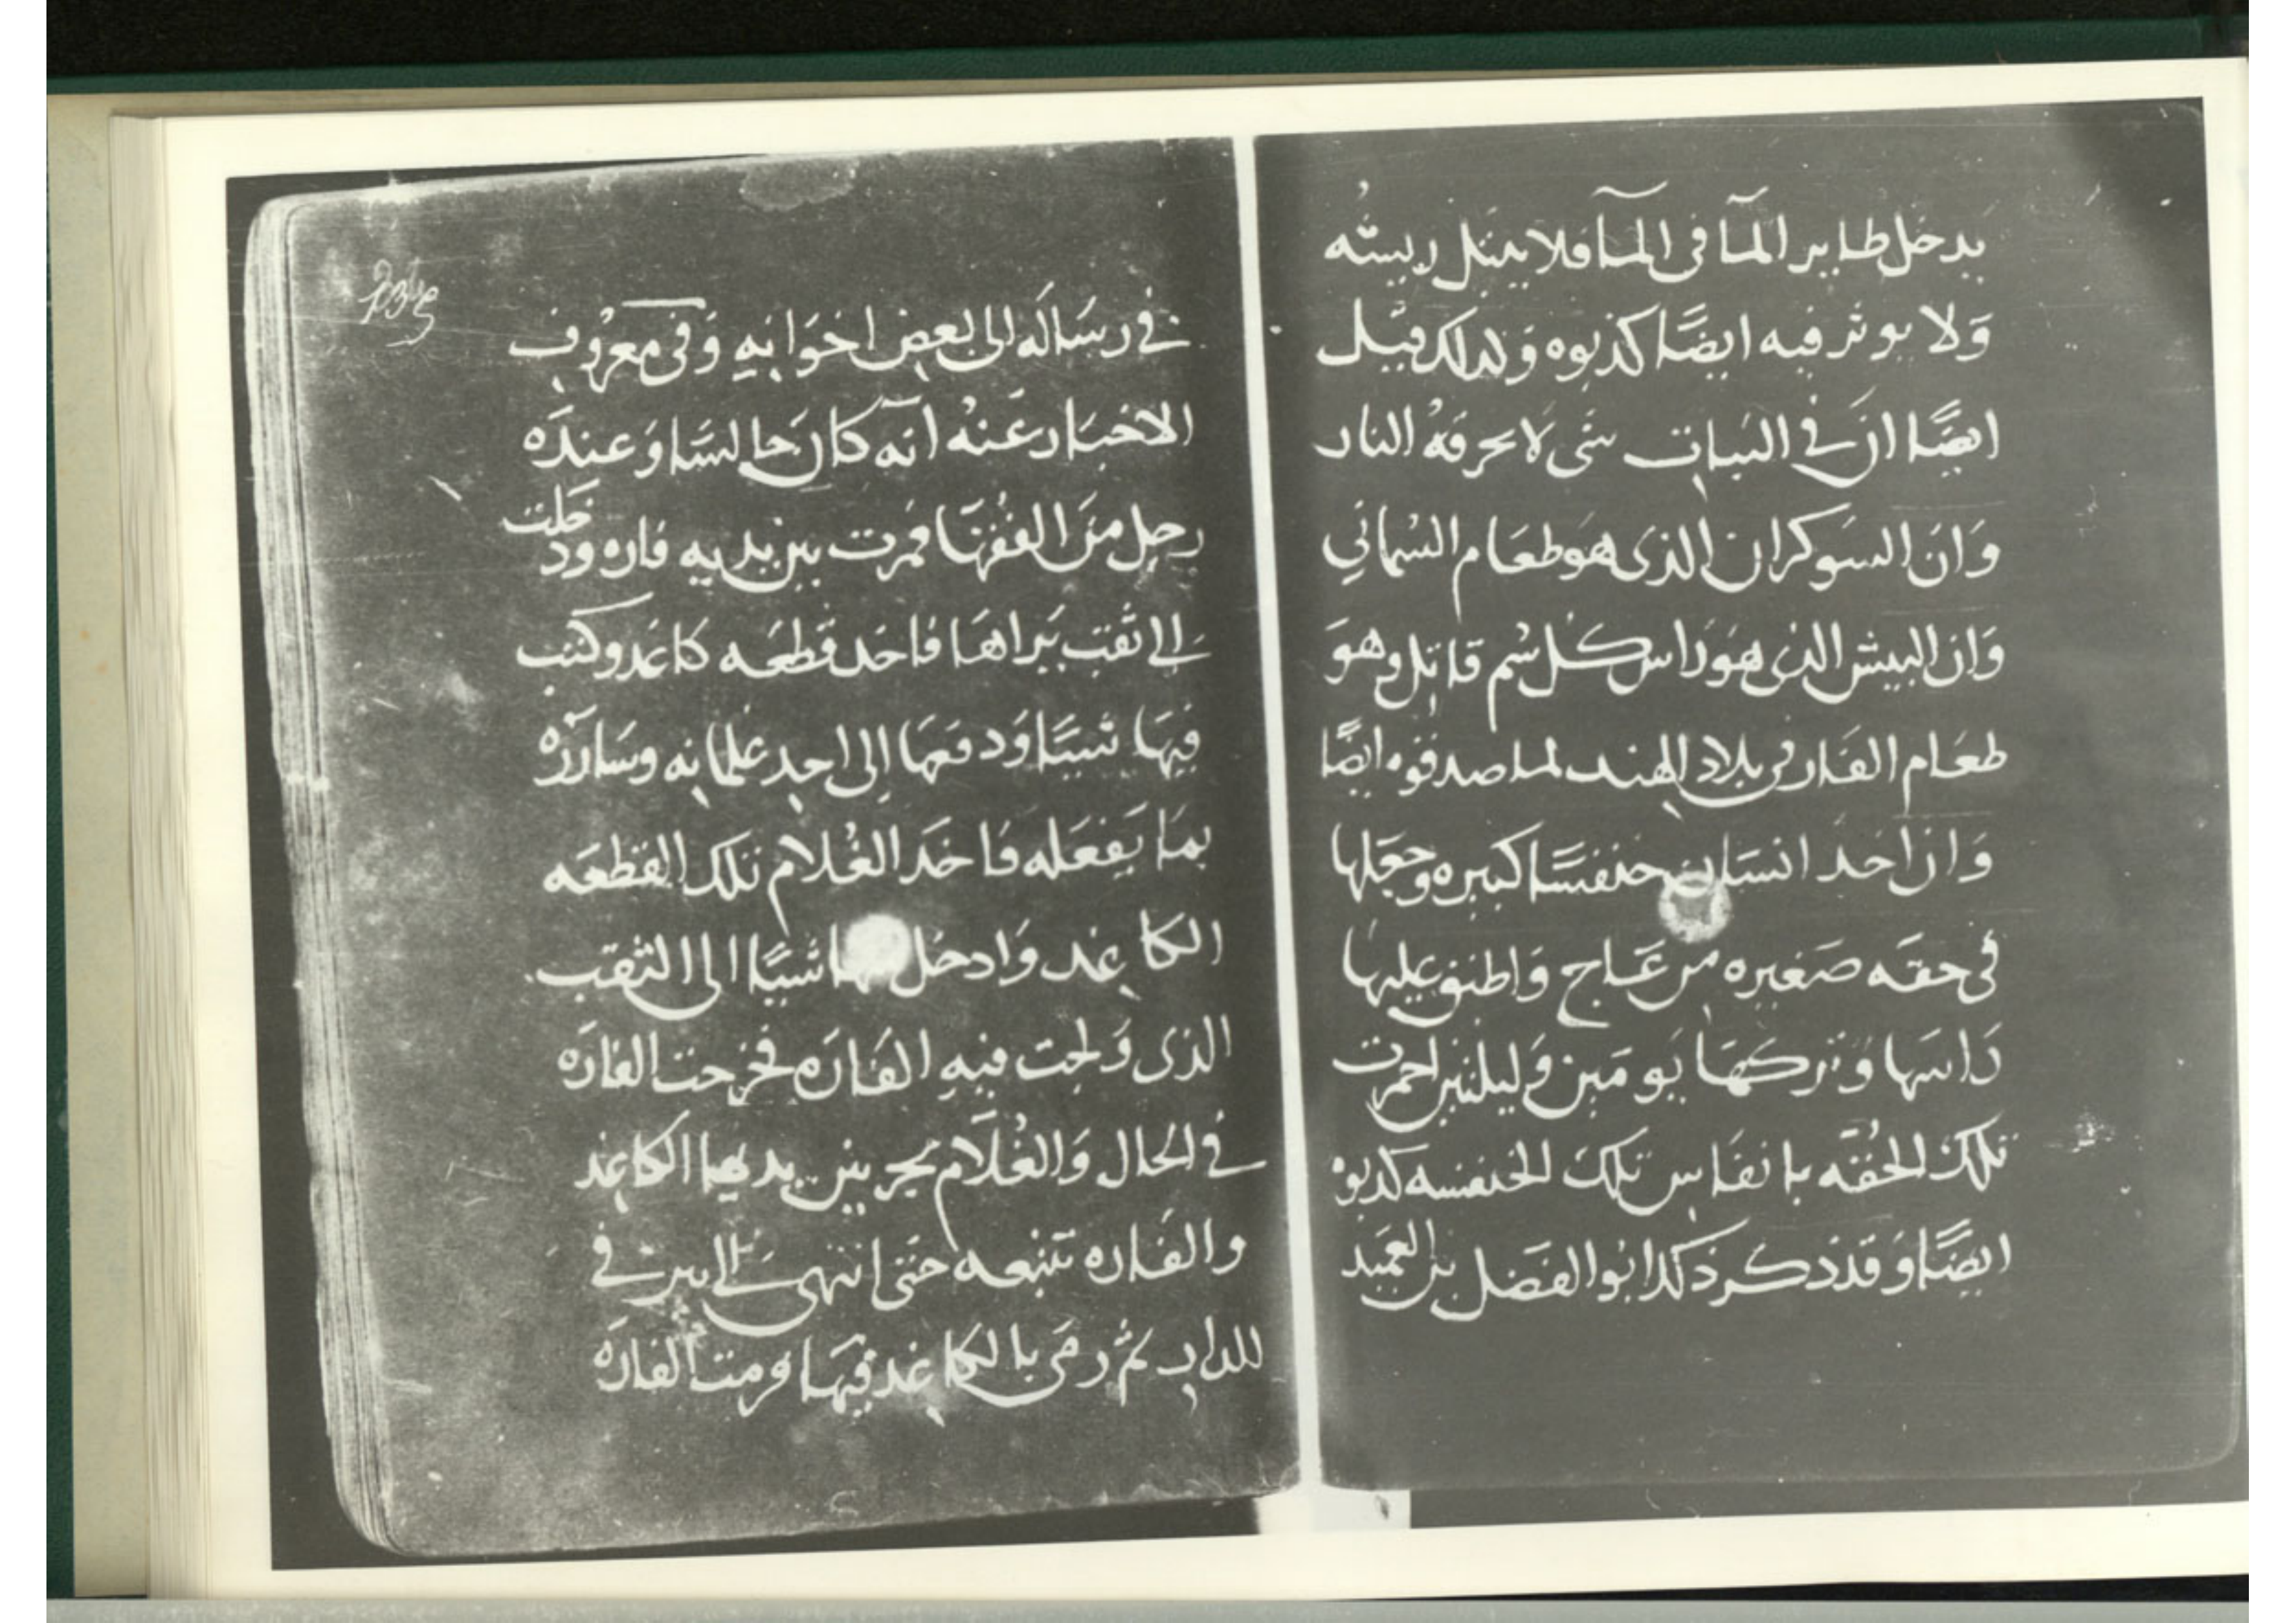 يدخل طاير المآ فى المآ فلا يبتل ريشه
وَلا يوثر فيه ايضًا كذبوه وَلذلك قيل
ايضًا ان في النبات شى لا يحرقهُ النار
وَان السوكران الذى هو طعَام السُمانَي
وَان البيش الذى هوَ راس كل سُم قاتل وهوَ
طعَام الفار فى بلاد الهند لما صدقوه ايضًا
وَان اخذ انسَان خنفسًا كبيره وجعَلها
فى حقه صَغيره من عَاج وَاطبق عليها
رَاسَها وَتركهَا يَومَين وَليلتين احمرت
تلك الحُقّه بانفَاس تلك الخنفسه كذبوه
ايضًا وَقد ذكر ذكك ابُو الفضل بن العميد
في رسَاله الى بعض اخوَانهِ وَفى معرُوفِ
الاخبَار عَنهُ انه كان جالسًا وَعندَه
رجل منَ الفقهَا فمرت بين يديه فاره ودخلت
الى ثقب يَراهَا فاخد قطعَه كاغد وكتب
فيهَا شيئًا وَدفعَها الى احدِ غلمانهِ وسَارَرَه
بمَا يَفعَله فاخَد الغُلام تلك القطعَه
الكاغد وَادخل شيئًا الى الثقب
الذى وَلجت فيهِ الفَارَه فخرجت الفارَه
في الحال وَالغُلام يجر بين يديها الكاغد
والفَاره تتبعه حَتى انتهىَ الى بير في
الدار ثم رمَى بالكاغد فيهَا فرمت الفارَه